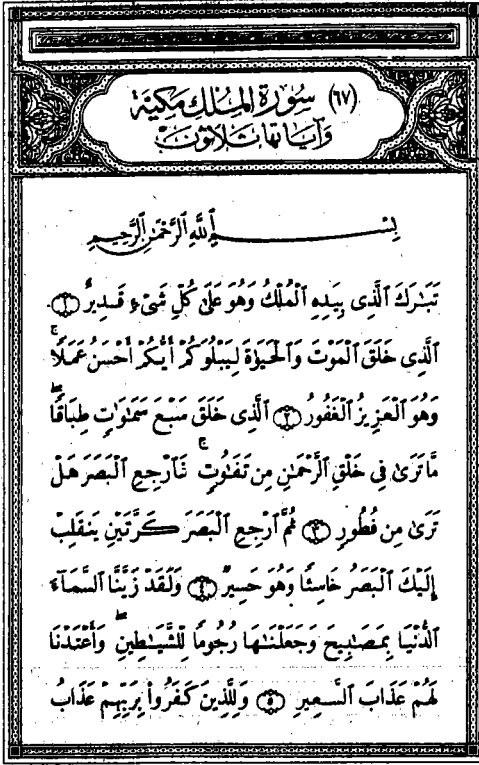 (٦٧) سُورَةُ المُلْكِ مَكِيَّة
وَآيَاتهَا ثَلَاثُونَ
بِسْمِ ٱللَّهِ ٱلرَّحْمَٰنِ ٱلرَّحِيمِ
تَبَٰرَكَ ٱلَّذِى بِيَدِهِ ٱلْمُلْكُ وَهُوَ عَلَىٰ كُلِّ شَىْءٍ قَدِيرٌ ۝١
ٱلَّذِى خَلَقَ ٱلْمَوْتَ وَٱلْحَيَوٰةَ لِيَبْلُوَكُمْ أَيُّكُمْ أَحْسَنُ عَمَلًا ۚ
وَهُوَ ٱلْعَزِيزُ ٱلْغَفُورُ ۝٢ ٱلَّذِى خَلَقَ سَبْعَ سَمَٰوَٰتٍ طِبَاقًا ۖ
مَّا تَرَىٰ فِى خَلْقِ ٱلرَّحْمَٰنِ مِن تَفَٰوُتٍ ۚ فَٱرْجِعِ ٱلْبَصَرَ هَلْ
تَرَىٰ مِن فُطُورٍ ۝٣ ثُمَّ ٱرْجِعِ ٱلْبَصَرَ كَرَّتَيْنِ يَنقَلِبْ
إِلَيْكَ ٱلْبَصَرُ خَاسِئًا وَهُوَ حَسِيرٌ ۝٤ وَلَقَدْ زَيَّنَّا ٱلسَّمَآءَ
ٱلدُّنْيَا بِمَصَٰبِيحَ وَجَعَلْنَٰهَا رُجُومًا لِّلشَّيَٰطِينِ ۖ وَأَعْتَدْنَا
لَهُمْ عَذَابَ ٱلسَّعِيرِ ۝٥ وَلِلَّذِينَ كَفَرُوا۟ بِرَبِّهِمْ عَذَابُ